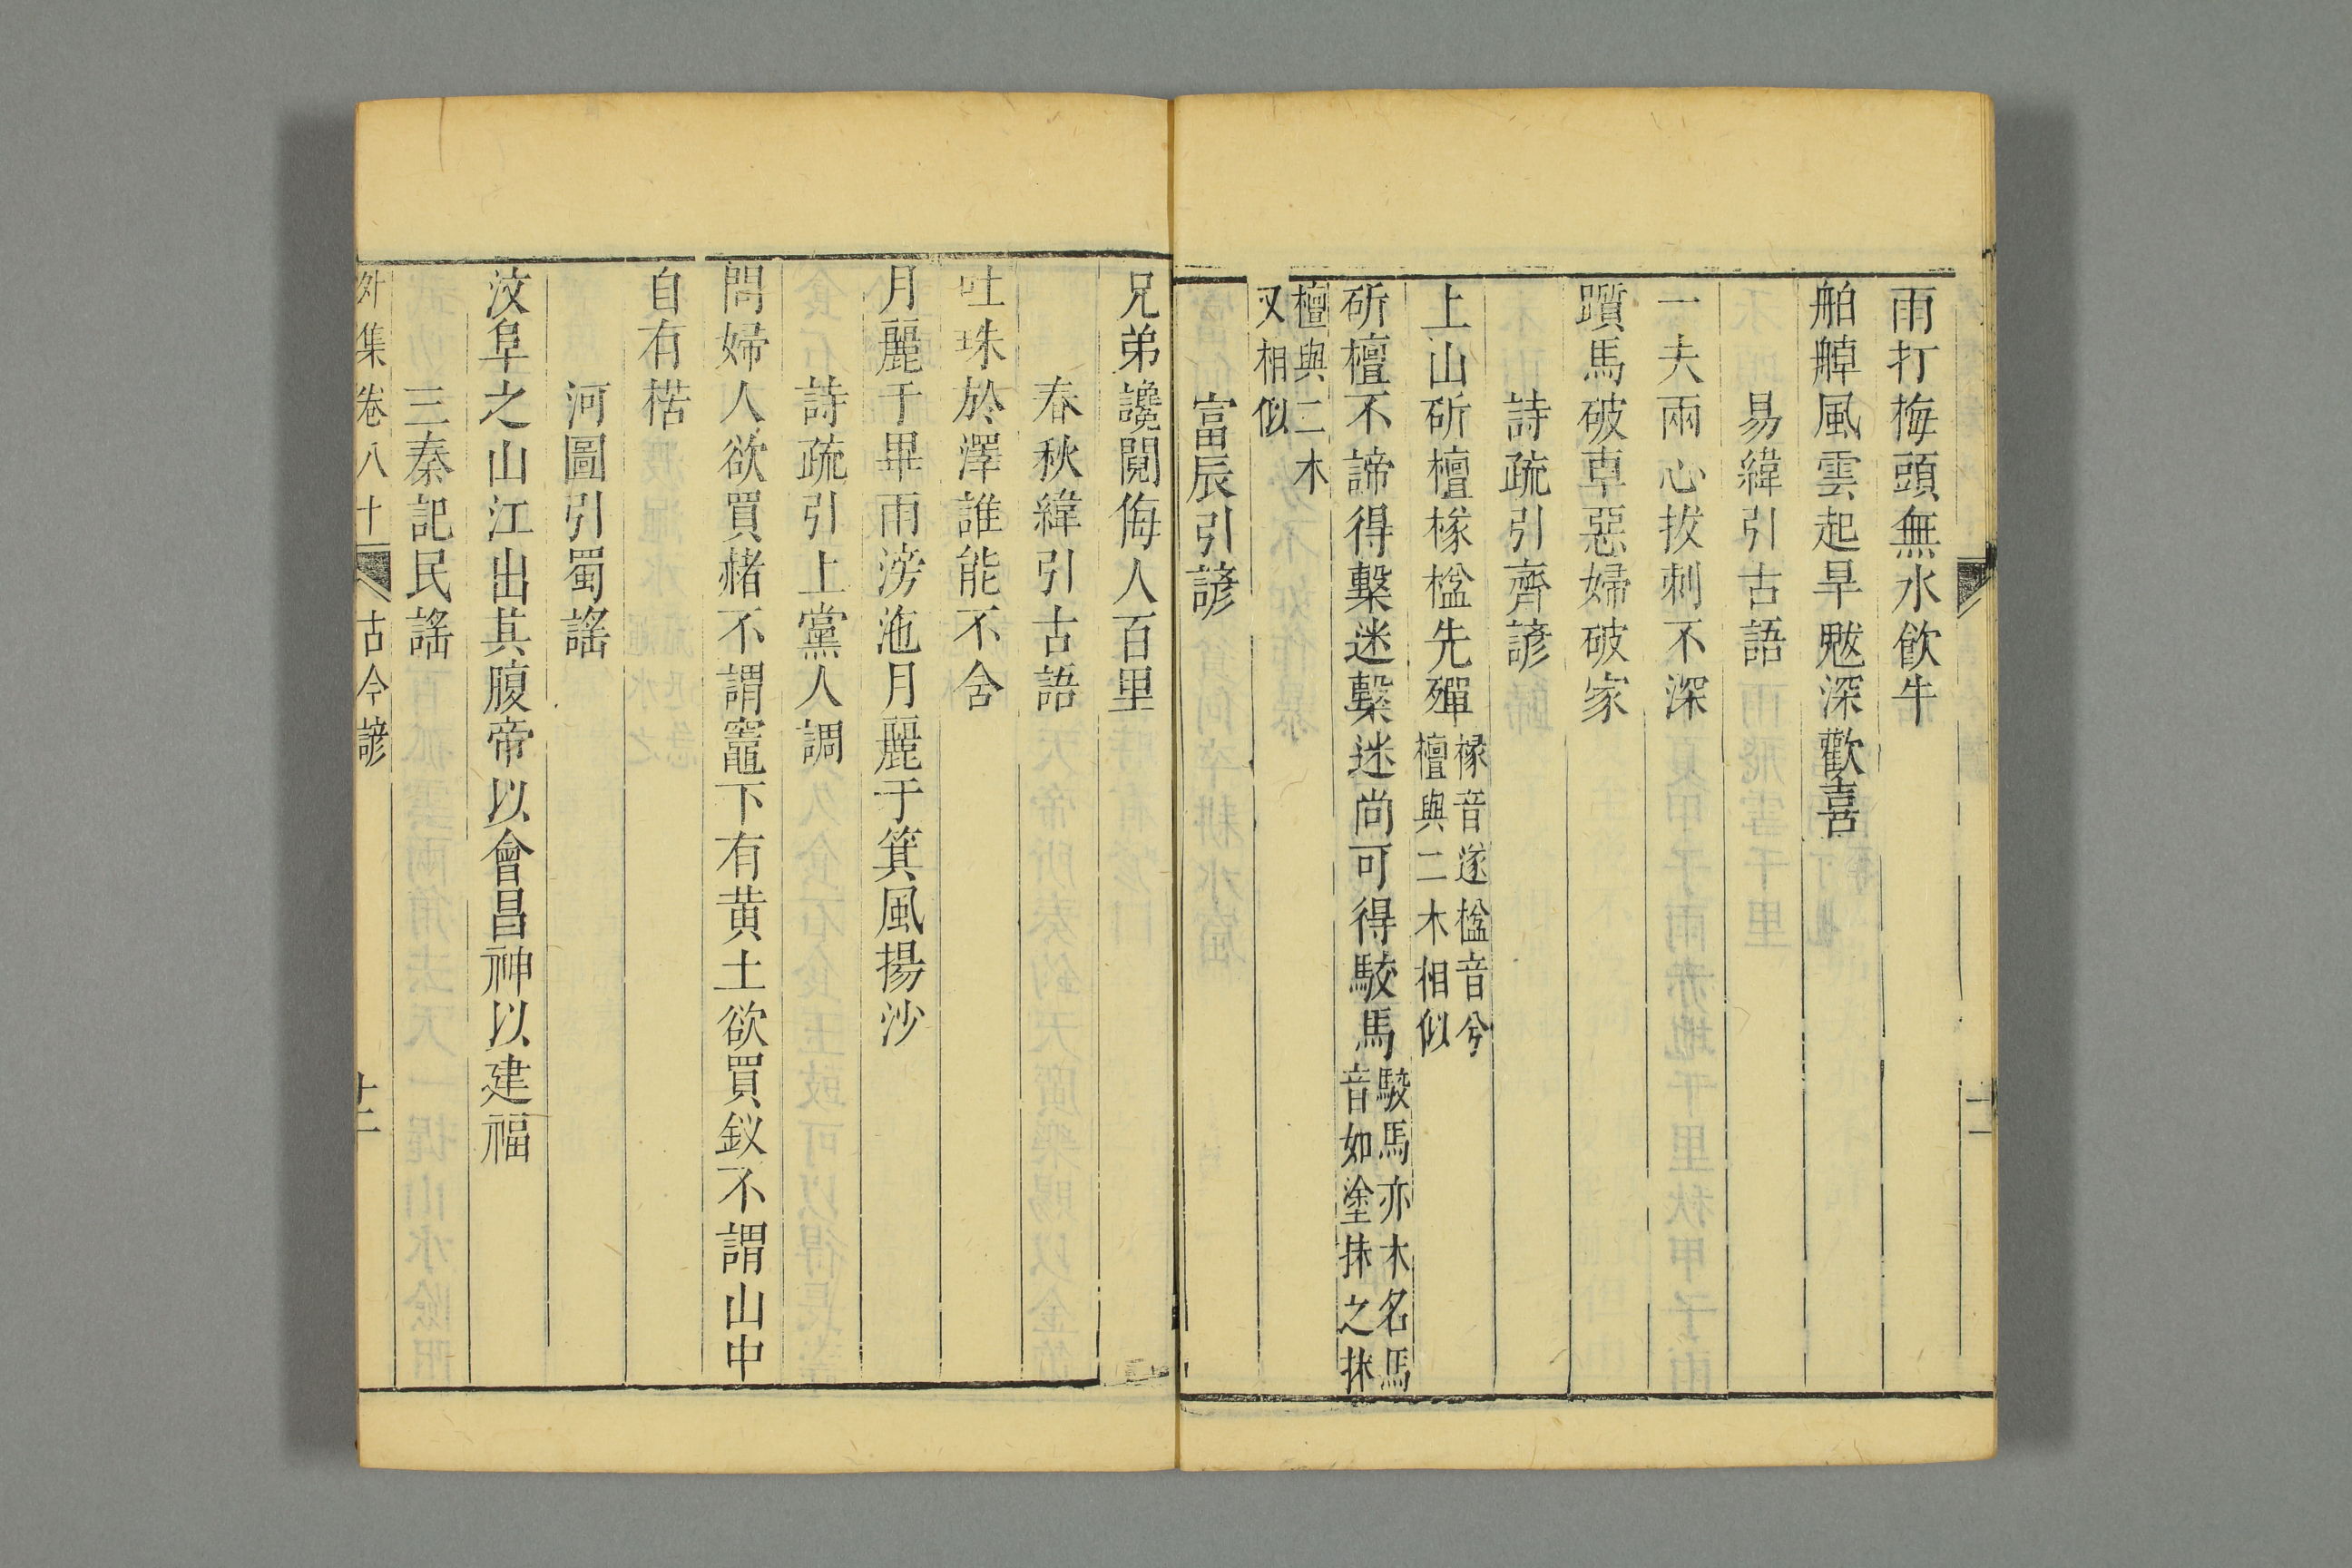 雨打梅頭無水飲牛
舶䑲風雲起旱魃深歡喜
易緯引古語
一夫兩心拔刺不深
躓馬破車惡婦破家
詩疏引齊諺
上山斫檀榽橀先殫
榽音遂橀音兮
檀與二木相似
斫檀不諦得繫迷繫迷尚可得駮馬
駮馬亦木名馬
音如塗抹之抹
檀與二木
又相似
富辰引諺
兄弟讒鬩侮人百里
春秋緯引古語
吐珠於澤誰能不含
月麗于畢雨滂沲月麗于箕風揚沙
詩疏引上黨人調
問婦人欲買赭不謂竈下有黄土欲買釵不謂山中
自有楛
河圖引蜀謠
汶阜之山江出其腹帝以會昌神以建福
三秦記民謠
外集卷八十
古今諺